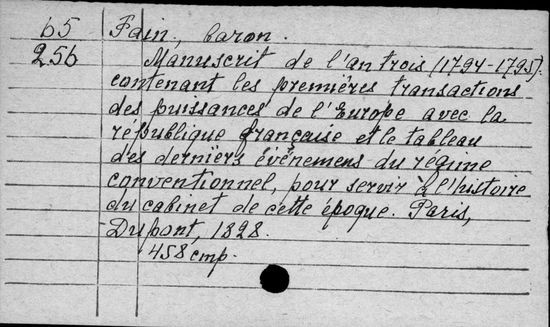 65 Fain, baron.
256 Manuscrit de l'an trois (1794-1795).
contenant les premières transactions
des puissances de l'Europe avec la
république française et le tableau
des derniers événemens du régime
conventionnel, pour servir à l'histoire
du cabinet de cette époque. Paris,
Dupont, 1828.
458 стр.